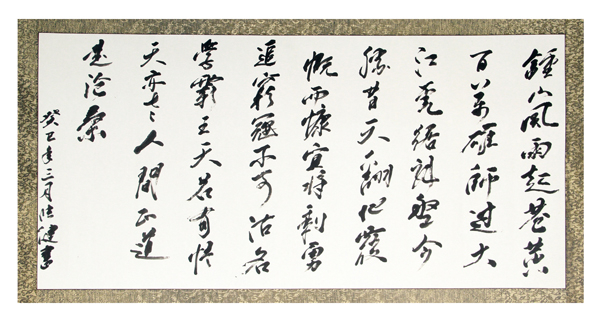 鍾山風雨起蒼黄
百萬雄師过大
江虎踞龍盤今
勝昔天翻地覆
慨而慷宜将剩勇
追窮寇不可沽名
學霸王天若有情
天亦老人間正道
是滄桑
癸巳年三月健書